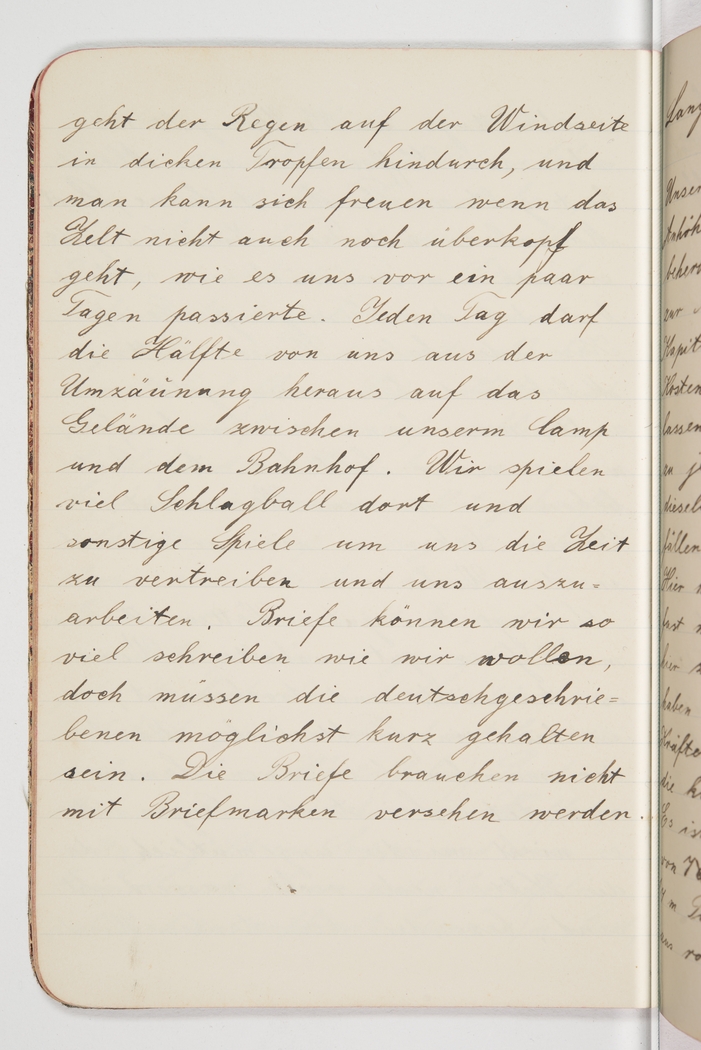 geht der Regen auf der Windseite
in dicken Tropfen hindurch, und
man kann sich freuen wenn das
Zelt nicht auch noch überkopf
geht, wie es uns vor ein paar
Tagen passierte. Jeden Tag darf
die Hälfte von uns aus der
Umzäunung heraus auf das
Gelände zwischen unserm Camp
und dem Bahnhof. Wir spielen
viel Schlagball dort und
sonstige Spiele um uns die Zeit
zu vertreiben und uns auszu=
arbeiten. Briefe können wir so
viel schreiben wie wir wollen,
doch müssen die deutschgeschrie=
benen möglichst kurz gehalten
sein. Die Briefe brauchen nicht
mit Briefmarken versehen werden.